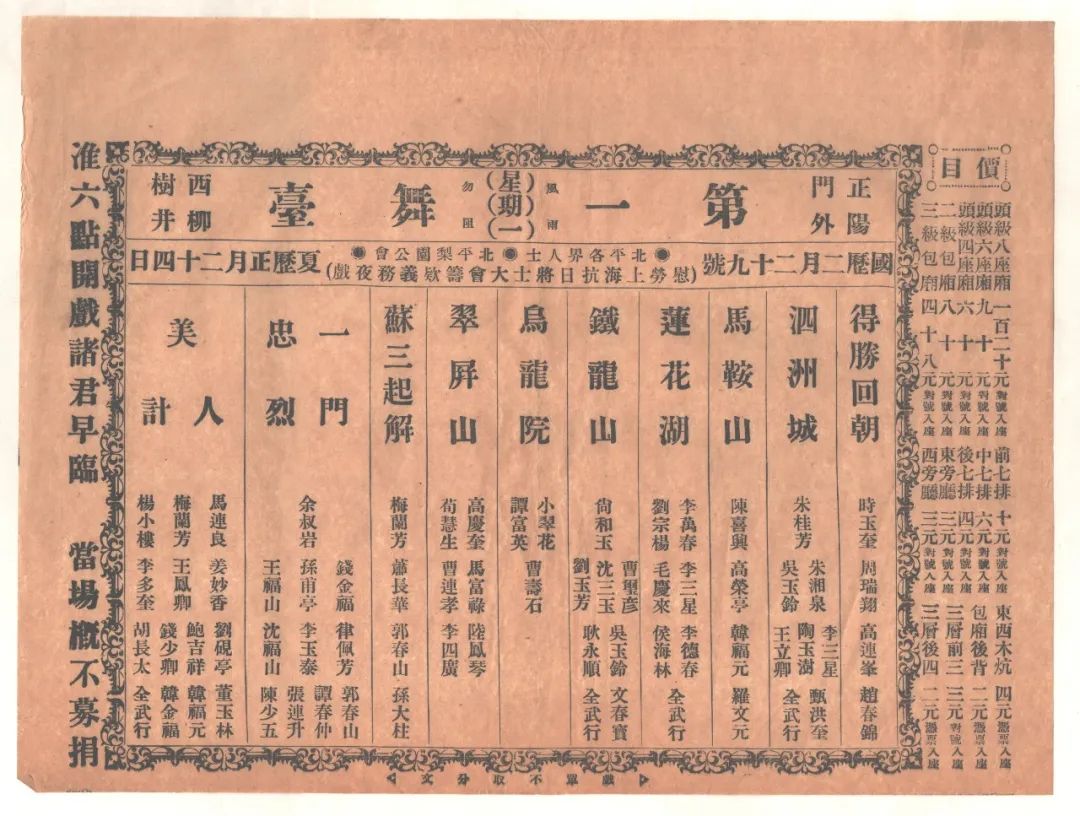 價目
頭級八座廂 一百二十元對號入座
頭級六座廂 九十元對號入座
頭級四座廂 六十元對號入座
二級包廂 八十元對號入座
三級包廂 四十八元對號入座
前七排 十元對號入座
中七排 六元對號入座
後七排 四元對號入座
東旁廳 三元對號入座
西旁廳 三元對號入座
東西木炕 四元憑票入座
包廂後背 二元憑票入座
三層前三 三元對號入座
三層後四 二元憑票入座
正陽門外
第一舞臺
風雨
(星期一)
勿阻
西柳樹井
國歷二月二十九號
北平各界人士 北平梨園公會
(慰勞上海抗日將士大會籌欵義務夜戲)
夏歷正月二十四日
得勝回朝
時玉奎 周瑞翔 高連峯 趙春錦
泗洲城
朱桂芳 朱湘泉 吳玉鈴 李三星 陶玉澍 王立卿 甄洪奎 全武行
馬鞍山
陳喜興 高榮亭 韓福元 羅文元
蓮花湖
李萬春 劉宗楊 李三星 毛慶來 李德春 侯海林 全武行
鐵龍山
尙和玉 曹璽彥 沈三玉 劉玉芳 吳玉鈴 耿永順 文春寶 全武行
烏龍院
小翠花 譚富英 曹壽石
翠屏山
高慶奎 荀慧生 馬富祿 曹連孝 陸鳳琴 李四廣
蘇三起解
梅蘭芳 蕭長華 郭春山 孫大柱
一門忠烈
余叔岩 錢金福 孫甫亭 王福山 律佩芳 李玉泰 沈福山 郭春山 譚春仲 張連升 陳少五
美人計
馬連良 梅蘭芳 楊小樓 姜妙香 王鳳卿 李多奎 劉硯亭 鮑吉祥 錢少卿 胡長太 董玉林 韓福元 韓金福 全武行
准六點開戲諸君早臨 當場概不募捐
戲單不取分文